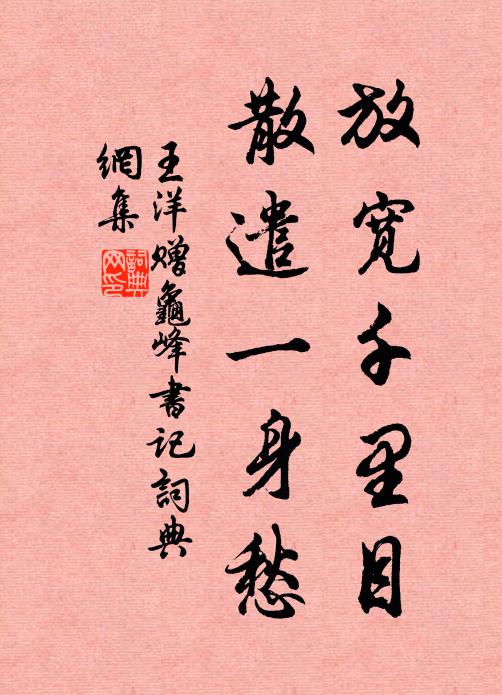 放寬千里目
散遣一身愁
王洋贈龜峰書記詞典
網集
詞典
网印